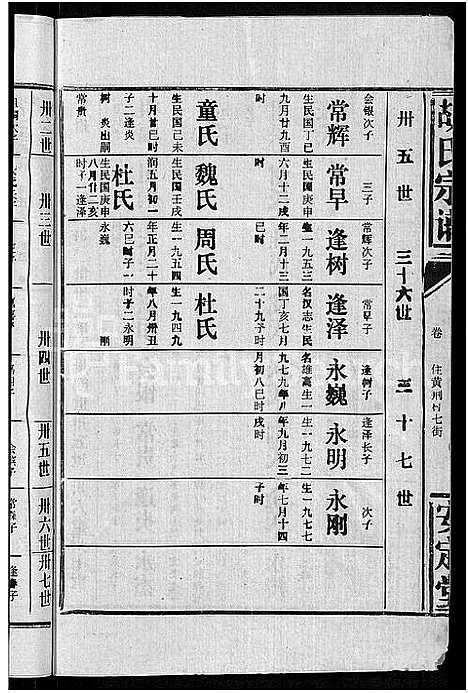 胡氏宗譜
卷
住黄荊村七街
安定堂
卅五世
三十六世
三十七世
会银次子
常辉
生民国丁巳
九月廿九酉
时
童氏
生民国己未
十月廿巳时
子二逢炎
树 炎出嗣
常贵
三子
常早
生民国庚申
六月十二戌
时
魏氏
生民国壬戌
润五月初一
杜氏
生民国庚申
八月廿二亥
时子一逢泽
常辉次子
逢树
生一九五三
年二月十三
时
周氏
生一九五四
年正月二十
六巳时子一
永巍
常早子
逢泽
名汉志生民
国丁亥七月
二十九寻时
杜氏
生一九四九
年八月卅丑
时子二永明
刚
逢树子
永巍
名雄高生一
九七九年八
月初八巳时
逢泽长子
永明
生一九七二
年九月初三
戌时
次子
永刚
生一九七七
年七月十四
子时
卅二世
卅三世
卅四世
卅五世
卅六世
卅七世